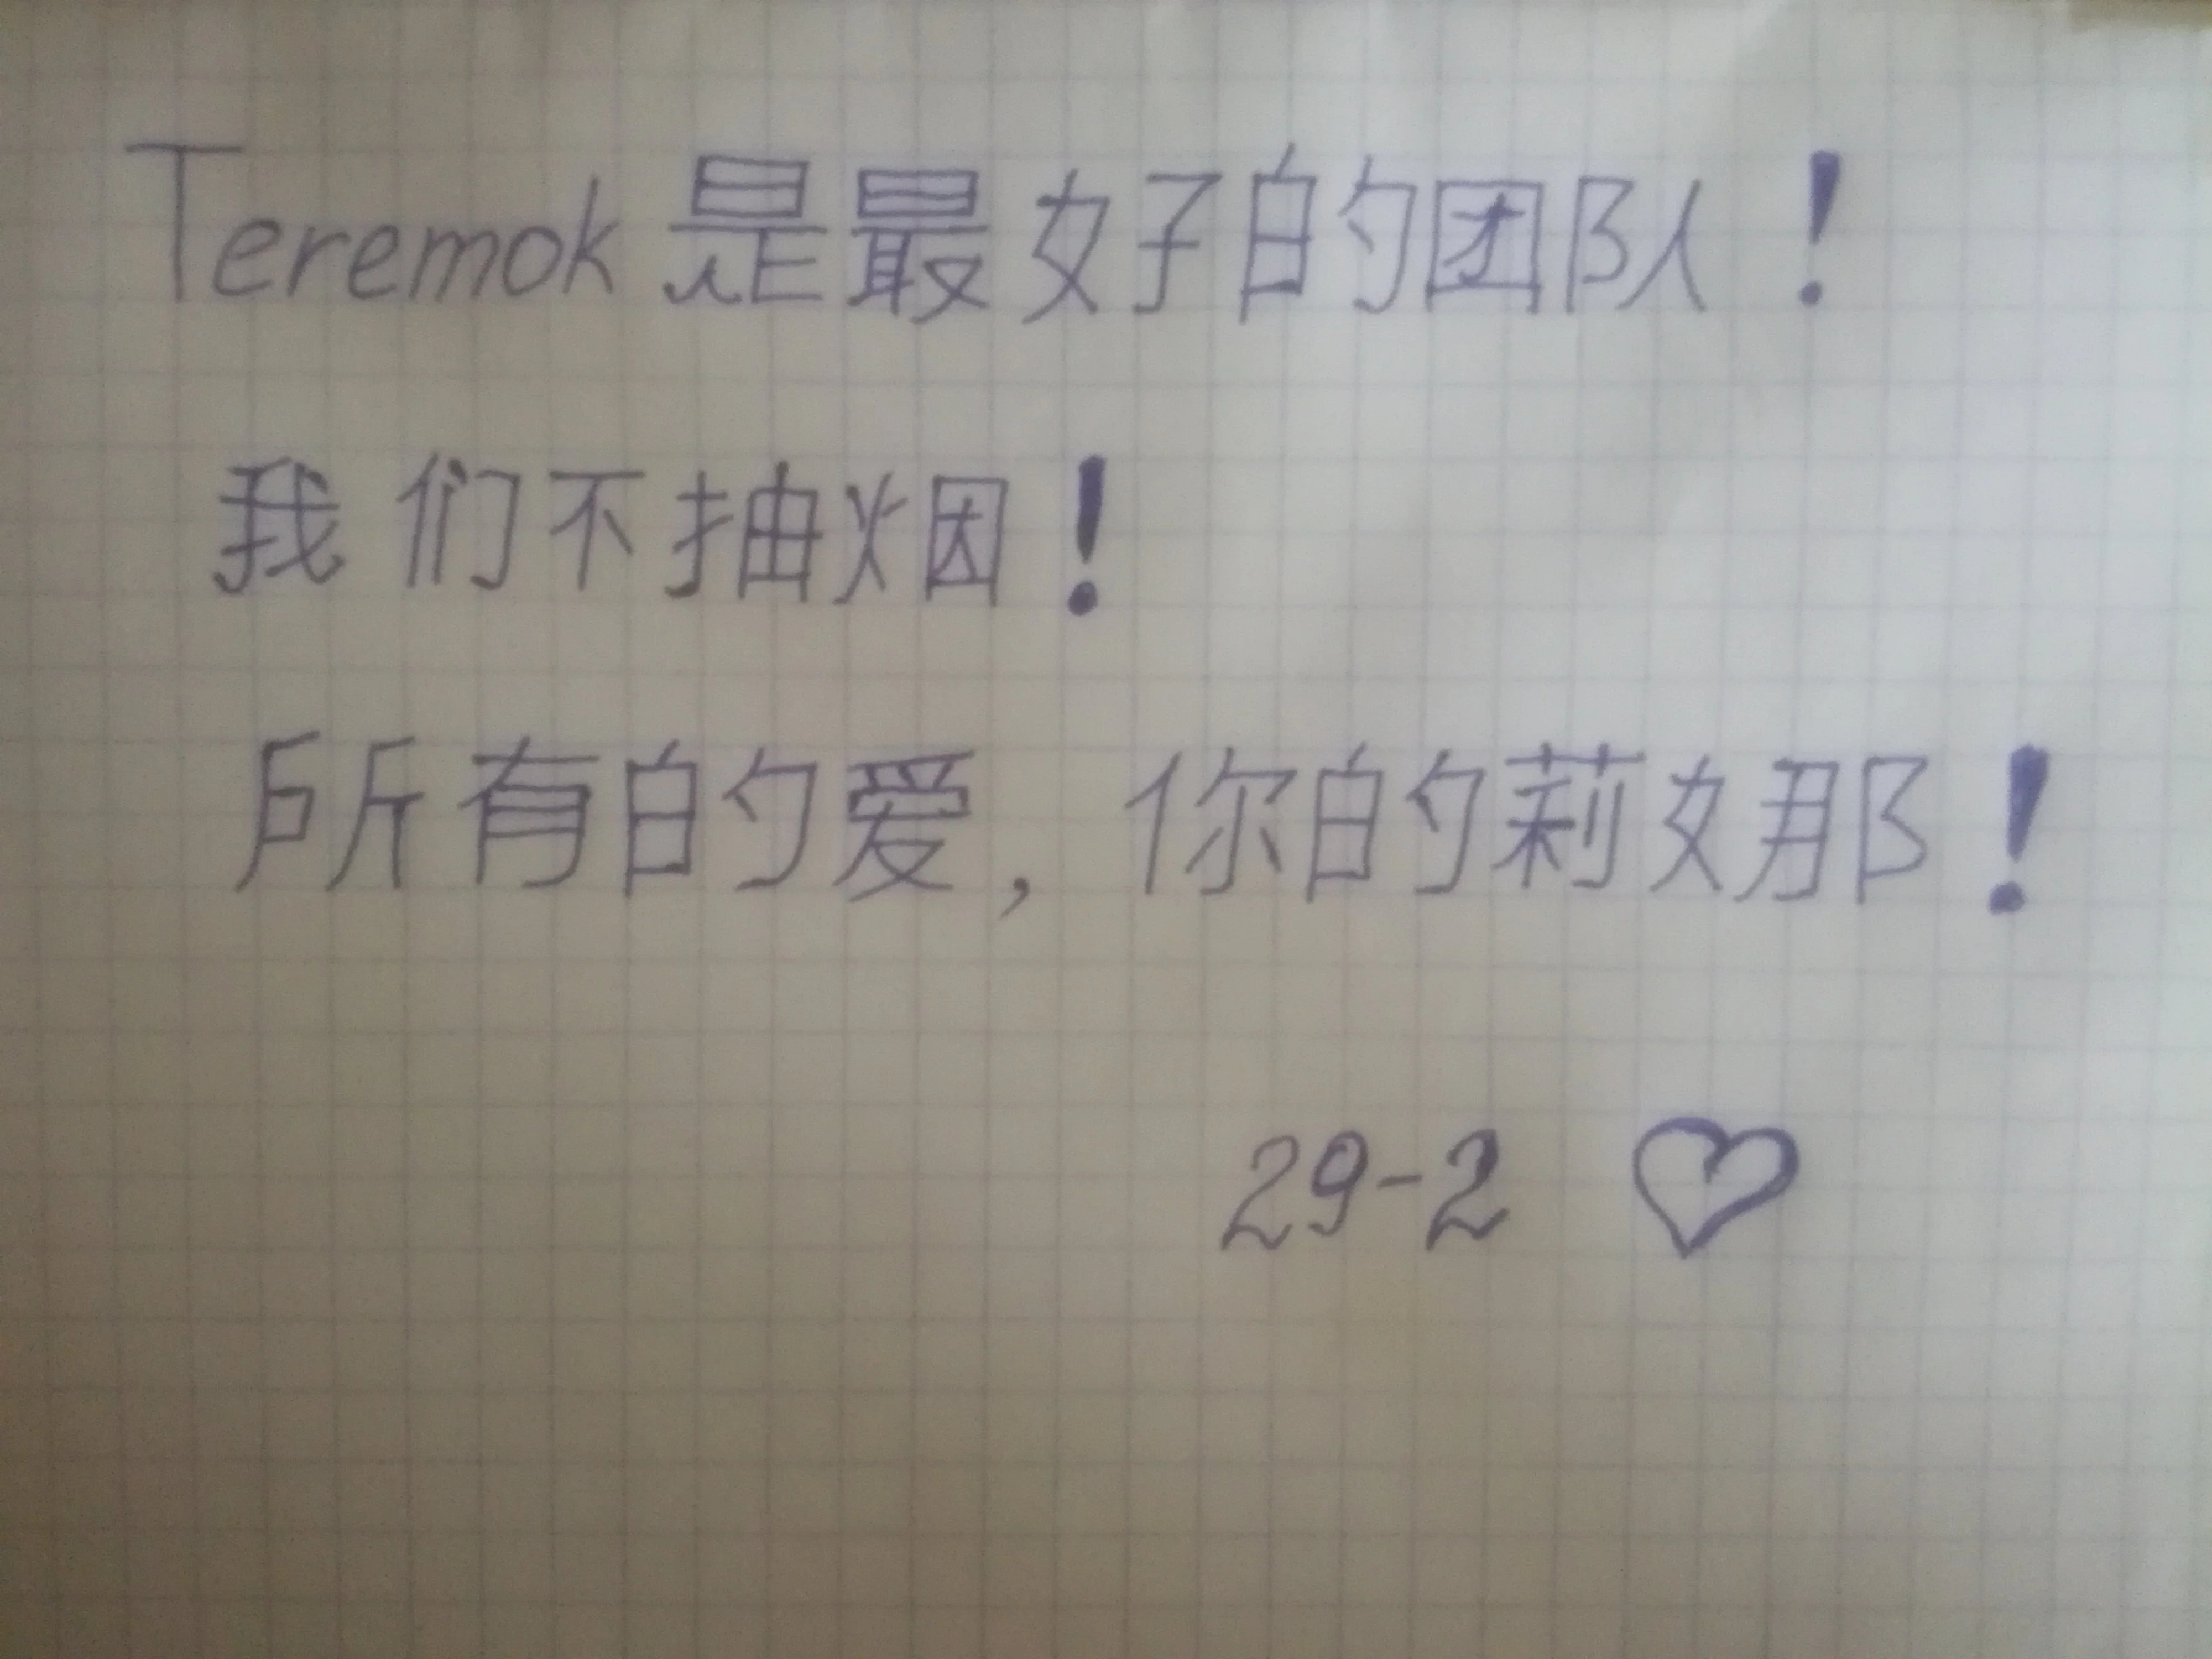 Teremok是最好的团队!
我们不抽烟!
所有的爱,你的莉娜!
29-2